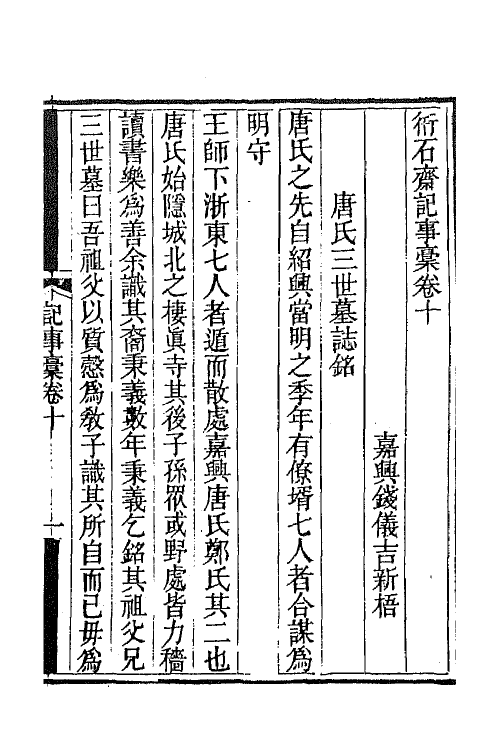 衎石齋記事槀卷十
嘉興錢儀吉新梧
唐氏三世墓誌銘
唐氏之先自紹興當明之季年有僚壻七人者合謀為
明守
王師下浙東七人者遁而散處嘉興唐氏鄭氏其二也
唐氏始隱城北之棲眞寺其後子孫眾或野處皆力穡
讀書樂為善余識其裔秉義數年秉義乞銘其祖父兄
三世墓曰吾祖父以質愨為敎子識其所自而已毋為
記事槀卷十
一